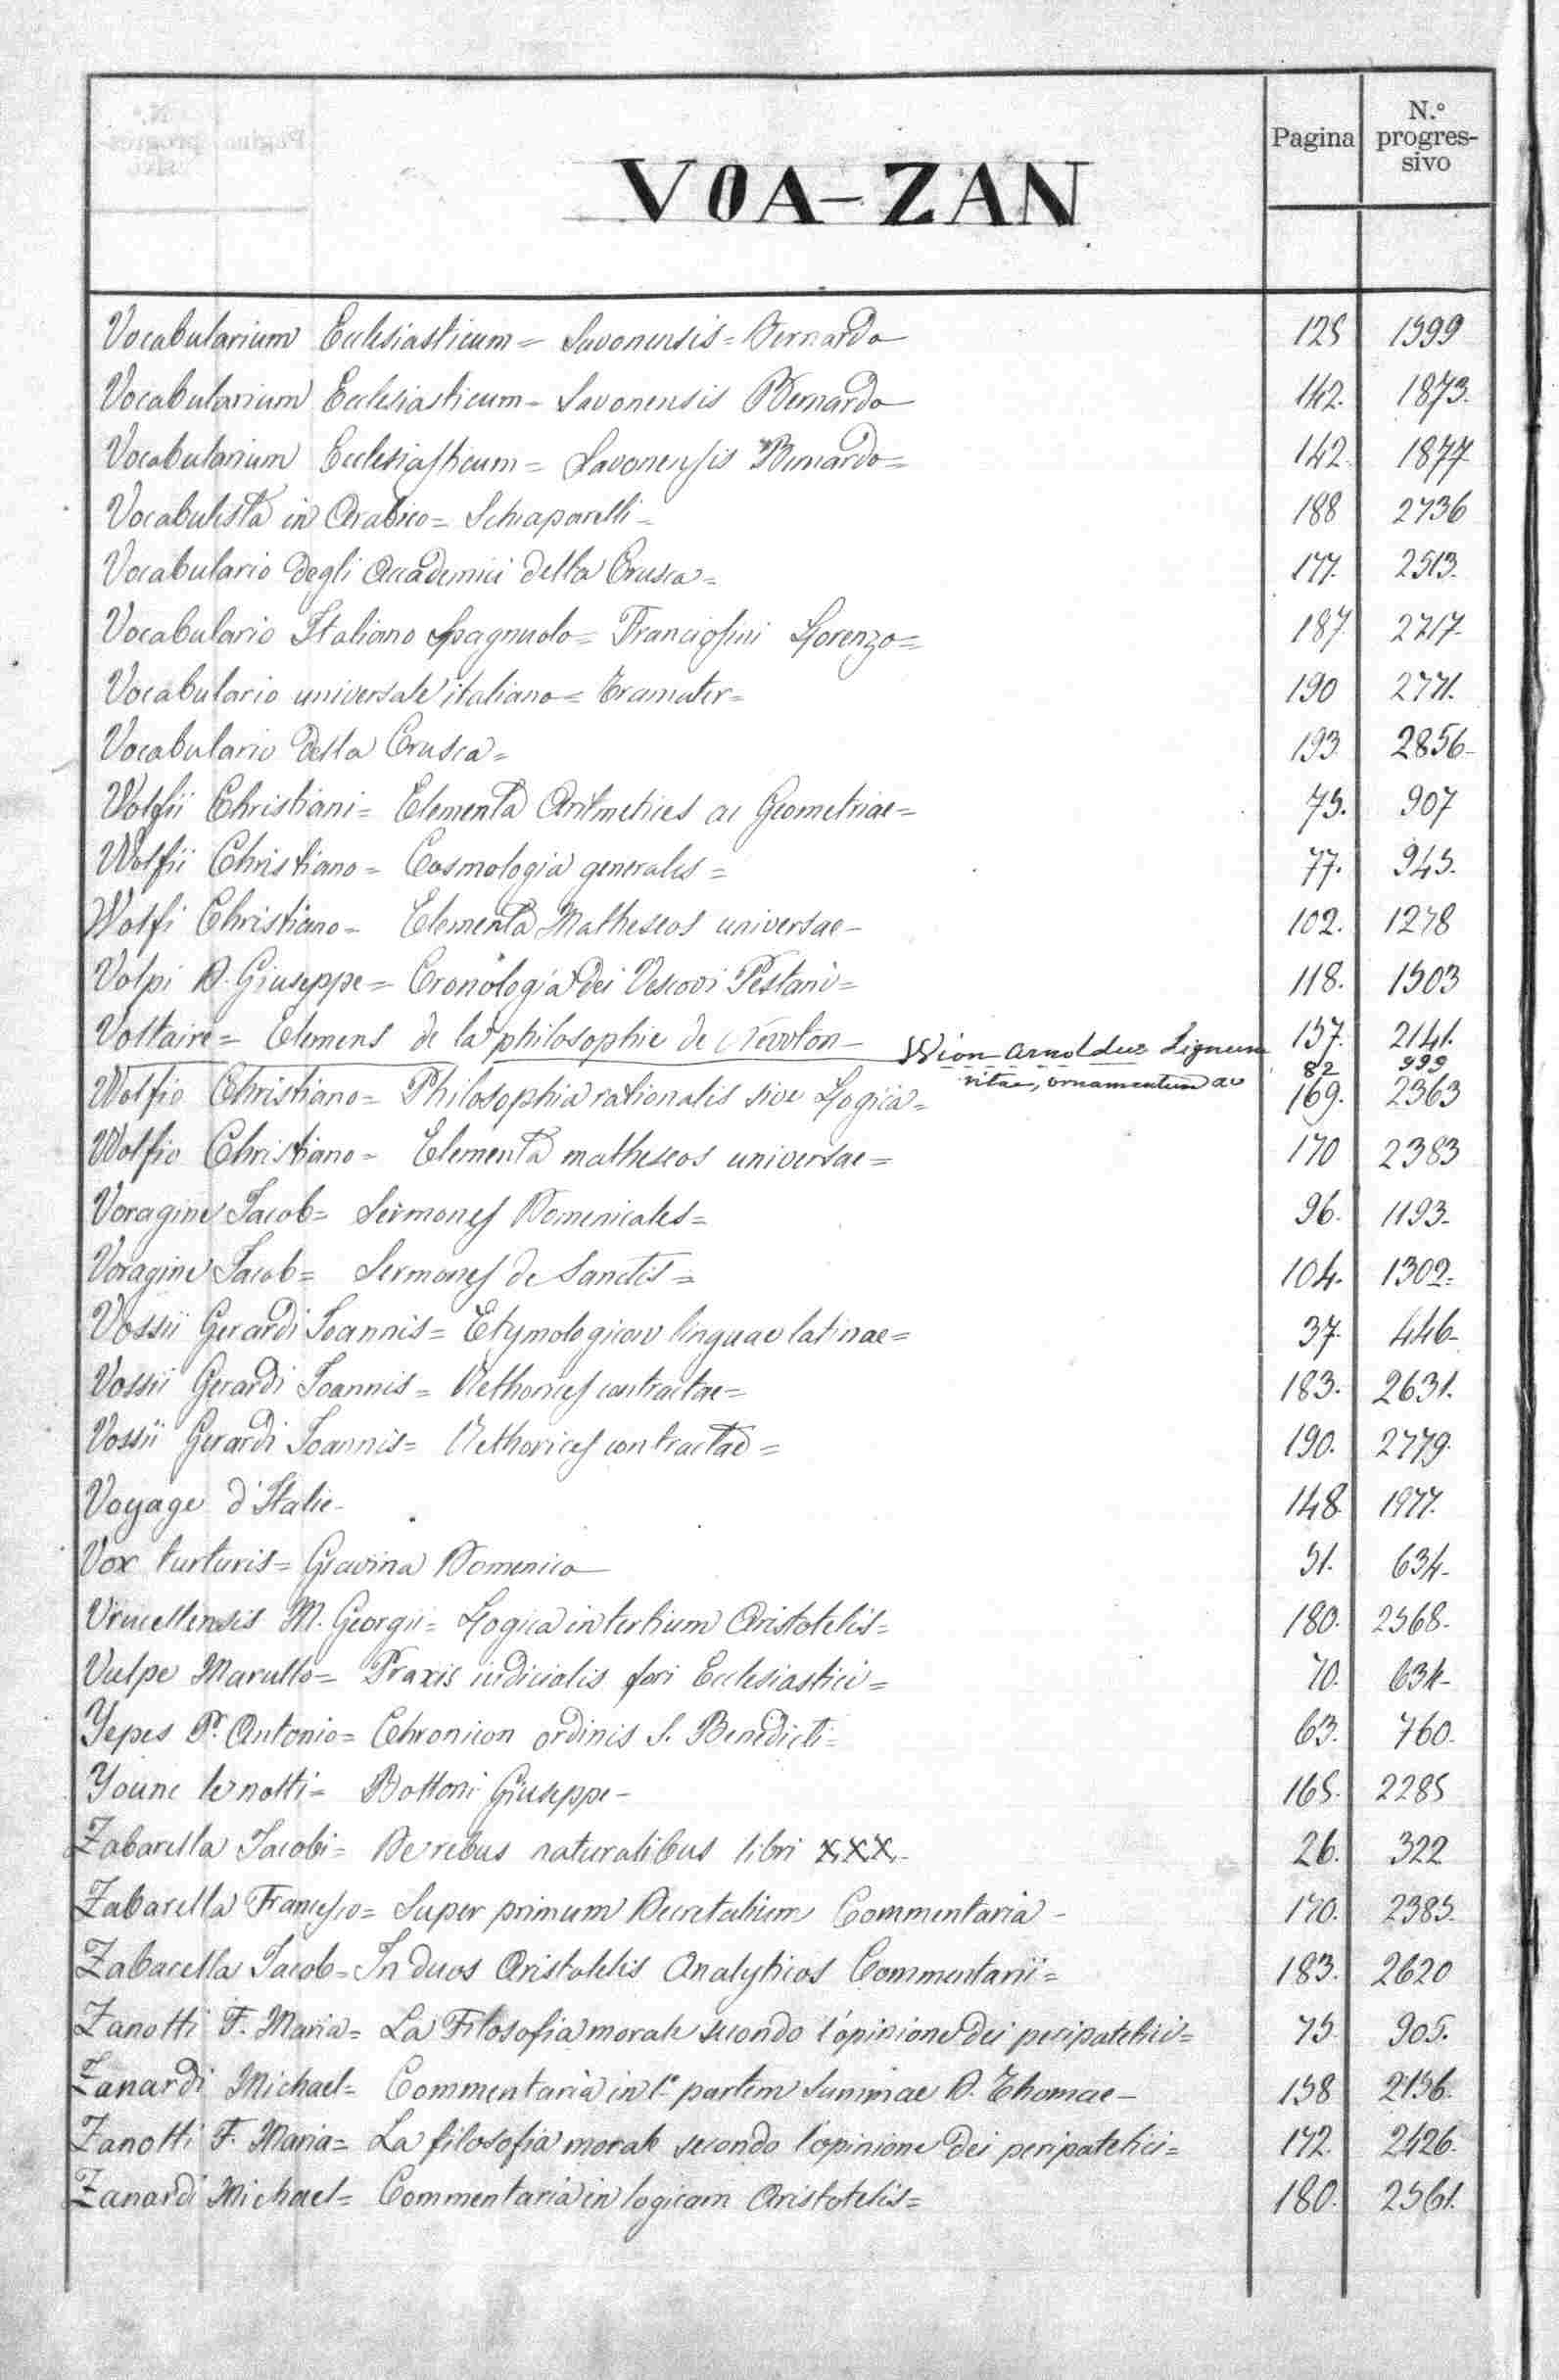 Pagina N.º progres-sivo
VOA-ZAN
Vocabularium Ecclesiasticum = Savonensis = Bernardo 125 1599
Vocabularium Ecclesiasticum - Savonensis Bernardo 142. 1873.
Vocabularium Ecclesiasticum = Savonensis Bernardo = 142. 1877
Vocabulista in Arabico = Schiaparelli = 188 2736
Vocabulario degli Accademici della Crusca = 177. 2513.
Vocabulario Italiano Spagnuolo = Franciosini Lorenzo = 187. 2717.
Vocabulario universale italiano = Tramater = 190 2771.
Vocabulario della Crusca = 193 2856
Wolfii Christiani = Elementa Aritmetices ac Geometriae = 75. 907
Wolfii Christiano = Cosmologia generales = 77. 945.
Wolfi Christiano = Elementa Matheseos universae - 102. 1278
Volpi D. Giuseppe = Cronologia dei Vescovi Pestani = 118. 1503
Voltaire = Elemens de la philosophie de Nevvton - 157. 2141.
Wion Arnoldus Lignum vitae, ornamentum ac 82 999
Wolfio Christiano = Philosophia rationalis sive Logica = 169. 2363
Wolfio Christiano = Elementa matheseos universae = 170 2383
Voragine Jacob = Sermones Domenicales = 96. 1193.
Voragine Jacob = Sermones de Sanctis = 104. 1302.
Vossii Gerardi Joannis = Etymologicon linguae latinae = 37. 446
Vossii Gerardi Joannis = Rethorices contractae = 183. 2631.
Vossii Gerardi Joannis = Rethorices contractae = 190. 2779.
Voyage d'Italie - 148. 1977.
Vox turturis = Gravina Domenico 51. 634
Vrucellensis M. Georgii = Logica in tertium Aristotelis = 180. 2568.
Vulpe Marullo = Praxis iudicialis fori Ecclesiastici = 70. 634
Yepes P. Antonio = Chronicon ordinis S. Benedicti = 63. 760.
Younc le notti = Bottoni Giuseppe - 165. 2285
Zabarella Jacobi = De rebus naturalibus libri XXX. 26. 322
Zabarella Francesco = Super primum Decretalium Commentaria - 170. 2385.
Zabarella Jacob = In duos Aristotelis Analyticos Commentarii = 183. 2620
Zanotti F. Maria = La Filosofia morale secondo l'opinione dei peripatetici = 75 905.
Zanardi Michael = Commentaria in 1ª partem Summae D. Thomae - 158 2156.
Zanotti F. Maria = La filosofia morale secondo l'opinione dei peripatetici = 172. 2426.
Zanardi Michael = Commentaria in logicam Aristotelis = 180. 2561.